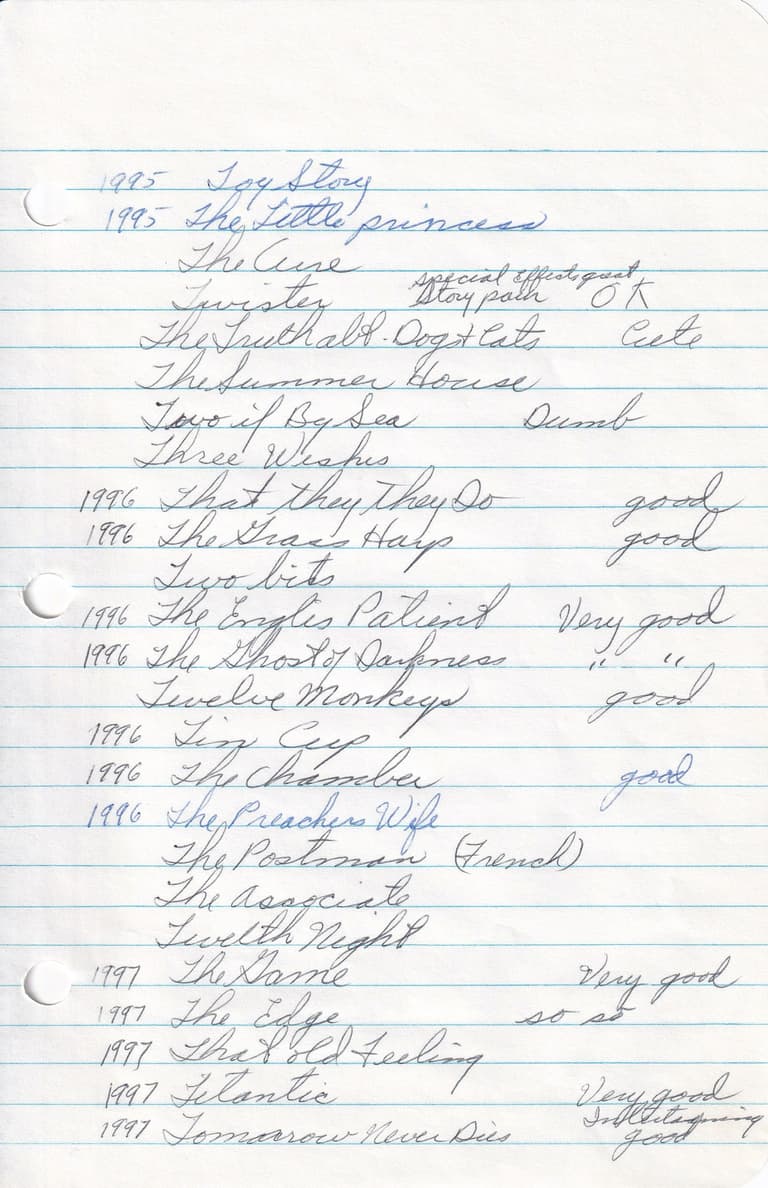 1995 Toy Story
1995 The Little princess
The Cure
special Effects great
Twister Story poor OK
The Truth abt. Dogs & Cats Cute
The Summer House
Two if By Sea Dumb
Three Wishes
1996 That they They Do good
1996 The Grass Harp good
Two bits
1996 The Englis Patient Very good
1996 The Ghost of Darkness " "
Twelve Monkeys good
1996 Tin Cup
1996 The Chamber good
1996 The Preachers Wife
The Postman (French)
The Associate
Twelth Night
1997 The Game Very good
1997 The Edge so so
1997 That old Feeling
1997 Titantic Very good
1997 Tomarrow Never Dies good